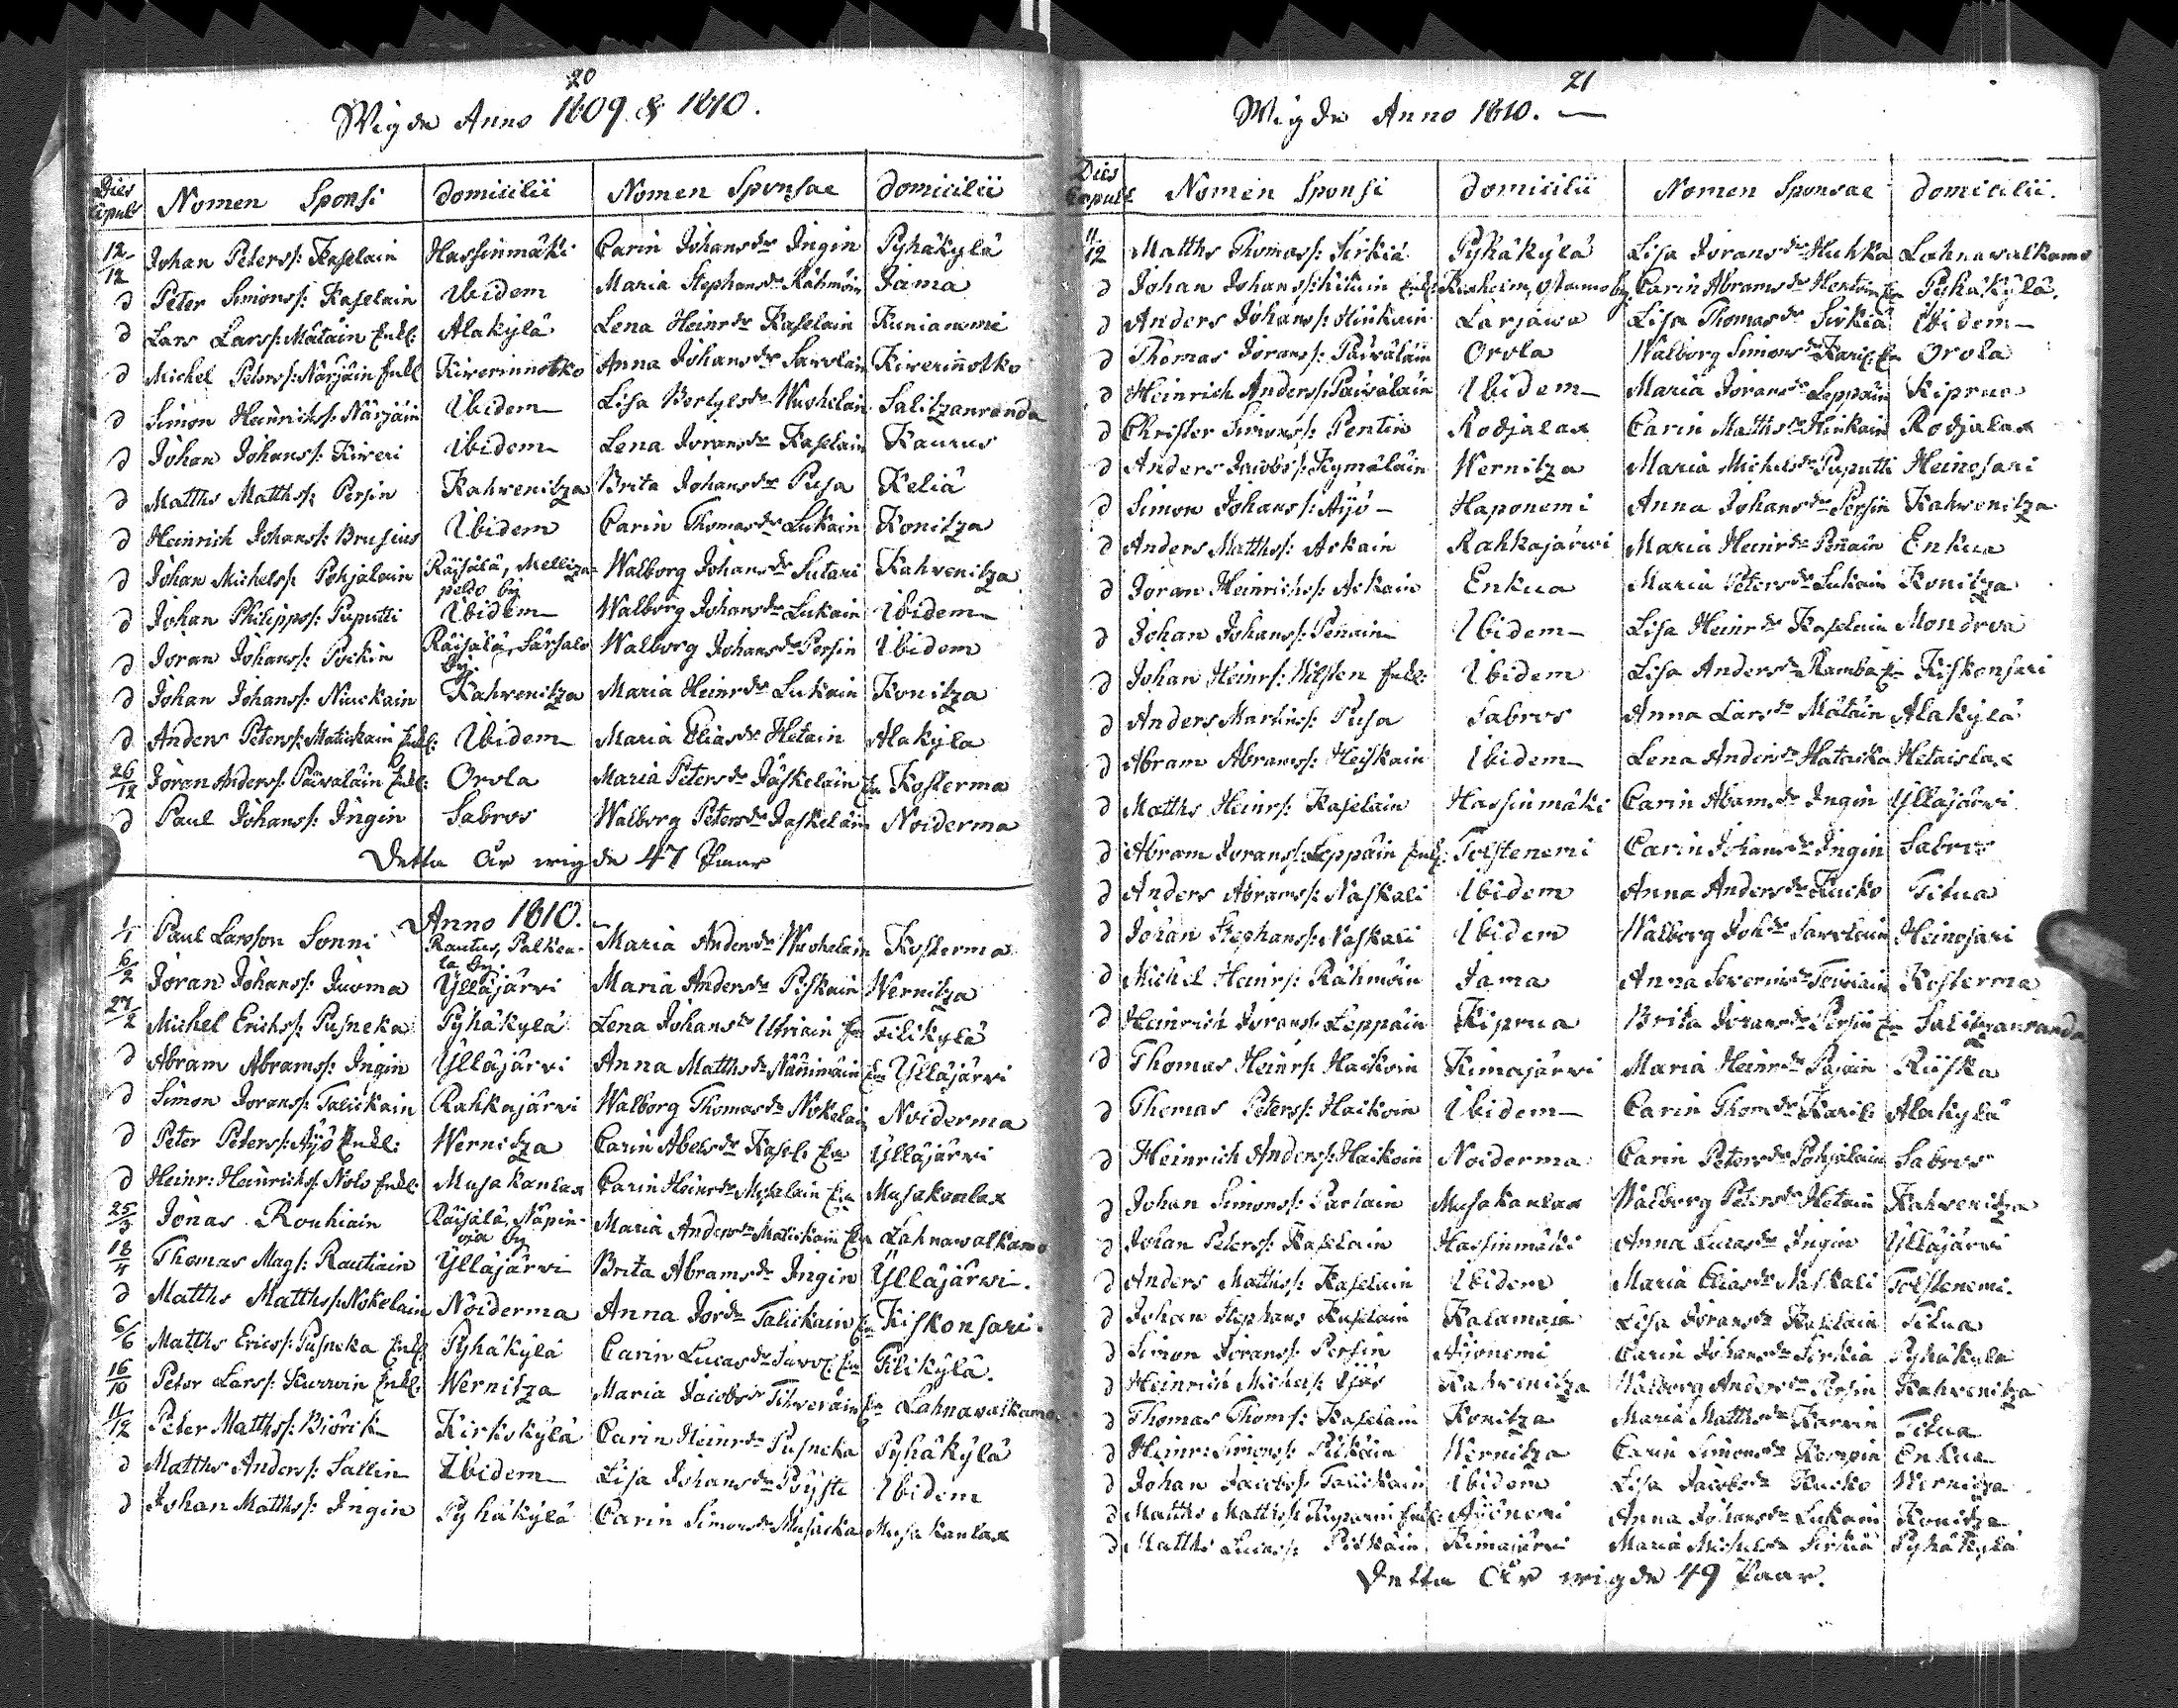 20
Wigde Anno 1809 & 1810.
Dies Copul: Nomen Sponsi Domicilii Nomen Sponsae Domicilii
12/12 Johan Peters: Kaselain Hassinmäki Carin Johansdr Ingin Pyhäkylä
d Peter Simons: Kaselain Ibidem Maria Stephansdr Rähmöin Jama
d Lars Lars: Mätäin Enkl: Alakylä Lena Heinrdr Kaselain Kunianiemi
d Michel Peters: Närjäin Enkl Kiwerinnotko Anna Johansdr Sawolain Kiwerinnotko
d Simon Heinrichs: Närjäin Ibidem Lisa Bertylsdr Wuohelain Salitzanranda
d Johan Johans: Kiweri Ibidem Lena Joransdr Kaselain Kaurus
d Matths Matths: Persin Kahwenitza Brita Johansdr Pusa Keliä
d Heinrich Johans: Brusius Ibidem Carin Thomasdr Lukain Konitza
d Johan Michels: Pohjalain Räisälä, Melliza-
peldo by Walborg Johansdr Sutari Kahwenitza
d Johan Philipps: Puputti Ibidem Walborg Johansdr Lukain Ibidem
d Joran Johans: Pockin Räisälä, Särsalo
by. Walborg Johansdr Persin Ibidem
d Johan Johans: Niuckain Kahwenitza Maria Heinrdr Lukain Konitza
d Anders Peters: Matickain Enkl: Ibidem Maria Eliasdr Hetain Alakyla
26/12 Joran Anders: Päiwäläin Enkl: Orola Maria Petersdr Jäskeläin En Kosterma
d Paul Johans: Ingin Sabros Walborg Petersdr Jaskeläin Noiderma
Detta År wigde 47 Paar
Anno 1810.
1/1 Paul Larsson Sonni Rautus, Palkea-
la by. Maria Andersdr Wuohelain Kosterma
6/2 Joran Johans: Juoma Ylläjärvi Maria Andersdr Piskain Wernitza
27/2 Michel Erichs: Pusneka Pyhäkylä Lena Johansdr Utriain En Tilikylä
d Abram Abrams: Ingin Ylläjärvi Anna Matthsdr Nämimäin En Ylläjärvi
d Simon Jorans: Talickain Rahkajärvi Walborg Thomasdr Nokelain Noiderma
d Peter Peters: Äyö Enkl: Wernitza Carin Abelsdr Kasel: En Ylläjärvi
d Heinr: Heinrichs: Nolo Enkl: Musakanlax Carin Heinrdr Musalain En Musakanlax
25/3 Jonas Rouhiain Räisälä, Näpin-
oja by Maria Andersdr Matickain En Lahnawalkamo
18/4 Thomas Mags: Rautiain Ylläjärvi Brita Abramsdr Ingin Ylläjärwi.
d Matths Matths: Nokelain Noiderma Anna Jordr Talickain En Kiskonsari.
6/6 Matths Erics: Pusneka Enkl: Pyhäkylä Carin Lucasdr Juvo: En Tilikylä.
16/10 Peter Lars: Kurwin Enkl: Wernitza Maria Jacobsdr Tihweräin En Lahnawalkamo
11/12 Peter Matths: Biörik Kirkokylä Carin Heinrdr Pusneka Pyhäkylä
d Matths Anders: Sallin Ibidem Lisa Johansdr Pöysti Ibidem
d Johan Matths: Ingin Pyhäkylä Carin Simonsdr Musacka Musakanlax
21
Wigde Anno 1810. —
Dies Copull Nomen Sponsi Domicilii Nomen Sponsae Domicilii.
11/12 Matths Thomas: Sirkiä Pyhäkylä Lisa Joransdr Huhka Lahnawalkamo
d Johan Johans: Enkl: by. Carin Abramsdr En Pyhäkylä.
d Anders Johans: Hinkain Larjawa Lisa Thomasdr Sirkiä Ibidem
d Thomas Jorans: Päiwäläin Orola Walborg Simonsdr Karil: En Orola
d Heinrich Anders: Päiwäläin Ibidem Maria Joransdr Leppäin Kiprua
d Christer Simons: Pentin Rodjalax Carin Matthsdr Hinkain Rodjalax
d Anders Jacobs: Kymäläin Wernitza Maria Michelsdr Puputti Heinosari
d Simon Johans: Äyö Haponemi Anna Johansdr Persin Kahwenitza
d Anders Matths: Askain Rahkajärwi Maria Heinrdr Penain Enkua
d Joran Heinrichs: Askain Enkua Maria Petersdr Lukain Konitza
d Johan Johans: Penain Ibidem Lisa Heinrdr Kaselain Mondrva
d Johan Heinr: Hilsten Enkl: Ibidem Lisa Andersdr Ramba En Kiskonsari
d Anders Martins: Pusa Sabros Anna Larsdr Mätäin Alakylä
d Abram Abrams: Heiskain Ibidem Lena Andersdr Hatacka Hetaislax
d Matths Heinr: Kaselain Hassinmäki Carin Abramsdr Ingin Ylläjärvi
d Abram Jorans: Leppäin Enkl: Tolstenemi Carin Johansdr Ingin Sabros
d Anders Abrams: Naskali Ibidem Anna Andersdr Kucko Titua
d Johan Stephans: Naskali Ibidem Walborg Johdr Sawolain Heinosari
d Michel Heinr: Rähmöin Jama Anna Severinsdr Kosterma
d Heinrich Jorans: Leppäin Kiprua Brita Joransdr Persin En Salitzanranda
d Thomas Heinr: Haikoin Kimajärwi Maria Heinrdr Pajain Riiska
d Thomas Peters: Haikoin Ibidem Carin Thomdr Karil: Alakylä
d Heinrich Anders: Haikoin Noiderma Carin Petersdr Pohjalain Sabros
d Johan Simons: Parlain Musakanlax Walborg Petersdr Hetain Kahwenitza
d Johan Peters: Kaselain Hassinmäki Anna Lucasdr Ingin Ylläjärvi
d Anders Matths: Kaselain Ibidem Maria Eliasdr Naskali Tolstenemi.
d Johan Stephans Kaselain Kalamaja Lisa Joransdr Kaselain Titua
d Simon Jorans: Persin Äyönemi Carin Johansdr Sirkiä Pyhäkylä
d Heinrich Michels: Kahwenitza Walborg Andersdr Persin Kahwenitza
d Thomas Thoms: Kaselain Konitza Maria Matthsdr Karvin Titua
d Heinr: Simons: Pitkäin Wernitza Carin Simonsdr Kempin Enkua
d Johan Jacobs: Talickain Ibidem Lisa Jacobsdr Kucko Wernitza
d Matths Matths: Enkl: Äyönemi Anna Johansdr Lukain Konitza
d Matths Lucas: Pitkäin Kimajärvi Maria Michelsdr Sirkiä Pyhäkylä
Detta År wigde 49 Paar.